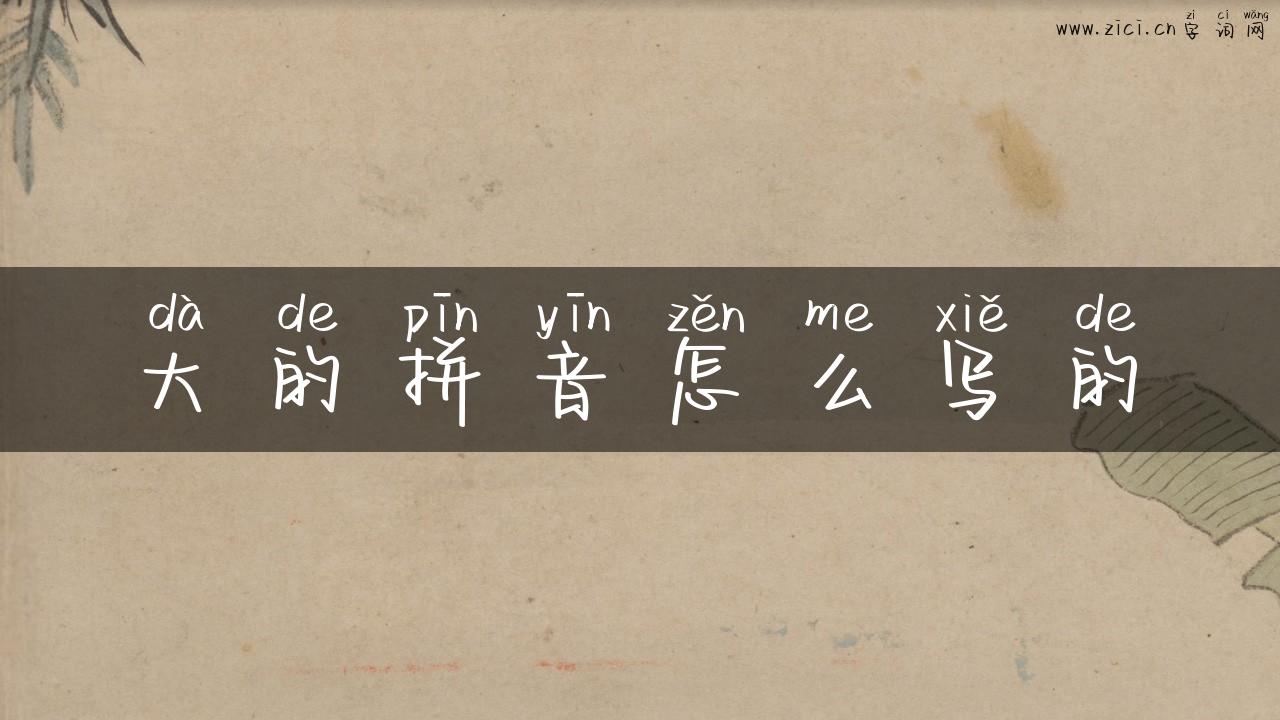 zì cí wǎng
www.zici.cn 字词网
dà de pīn yīn zěn me xiě de
大的拼音怎么写的